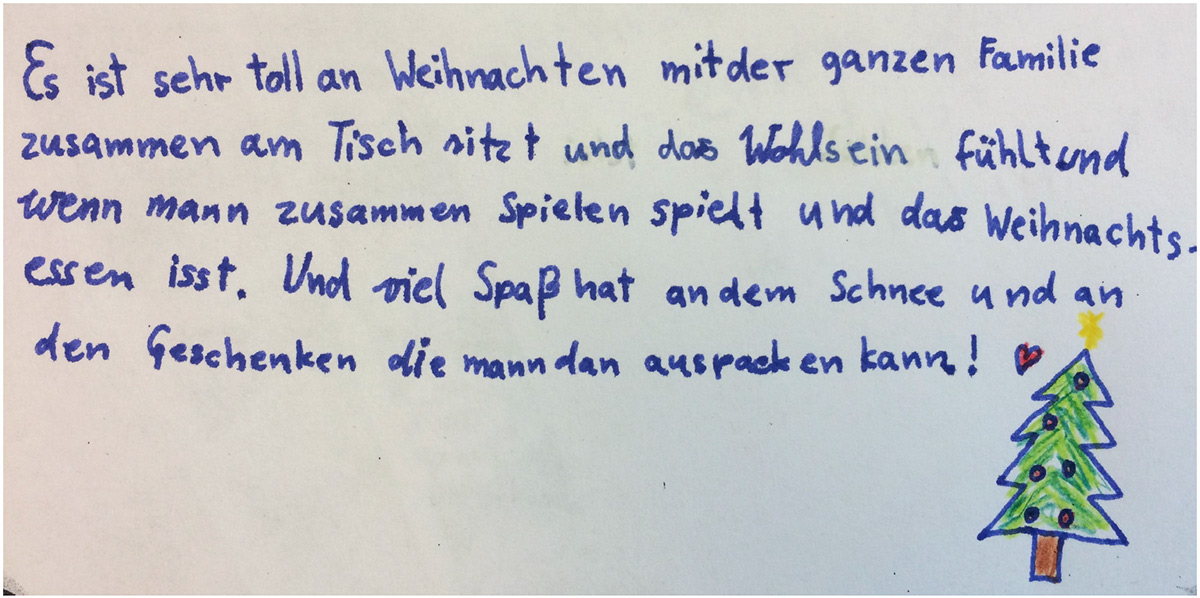 Es ist sehr toll an Weihnachten mit der ganzen Familie
zusammen am Tisch sitzt und das Wohlsein fühlt und
wenn mann zusammen Spielen spielt und das Weihnachts-
essen isst. Und viel Spaß hat an dem Schnee und an
den Geschenken die mann dan auspacken kann!